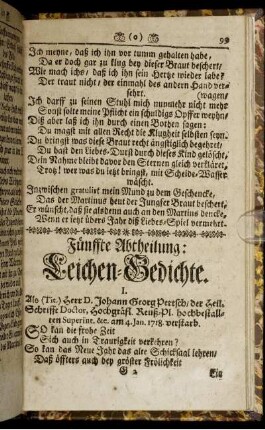 (o) 99
Ich meyne, daß ich ihn vor tumm gehalten habe,
Da er doch gar zu klug bey dieser Braut beschert,
Wie mach ichs, daß ich ihn sein Hertze wieder labe?
Der traut nicht, der einmahl des andern Handver-
sehrt. (wagens
Ich darff zu seinen Stuhl mich nunmehr nicht mehr
Sonst solte meine Pflicht ein schuldigs Opffer weyhn,
Diß aber laß ich ihn durch einen Bothen sagen:
Du magst mit allen Recht die Klugheit selbsten seyn.
Du bringst was diese Braut recht ängstiglich begehret;
Du hast den Liebes-Durst durch dieses Kind gelöscht,
Dein Nahme bleibt davor den Sternen gleich verkläret,
Trotz! wer was du itzt bringst, mit Scheide-Wasser
wäscht.
Inzwischen gratulirt mein Mund zu dem Geschencke,
Das der Martinus heut der Jungfer Braut beschert,
Er wünscht, daß sie alsdenn auch an den Martins dencke,
Wenn er itzt übers Jahr diß Liebes-Spiel vermehrt.
Fünffte Abtheilung:
Leichen-Gedichte.
I.
Als (Tit.) Herr D. Johann Georg Pertsch, der Heil.
Schrifft Doctor, Hochgräfl. Reuß-Pl. hochbestall-
ten Superint. &c. am 4. Jan. 1718. verstarb.
SO kan die frohe Zeit
Sich auch in Traurigkeit verkehren?
So kan das Neue Jahr das alte Schicksaal lehren,
Daß öffters auch bey gröster Frölichkeit
G 2 Ein